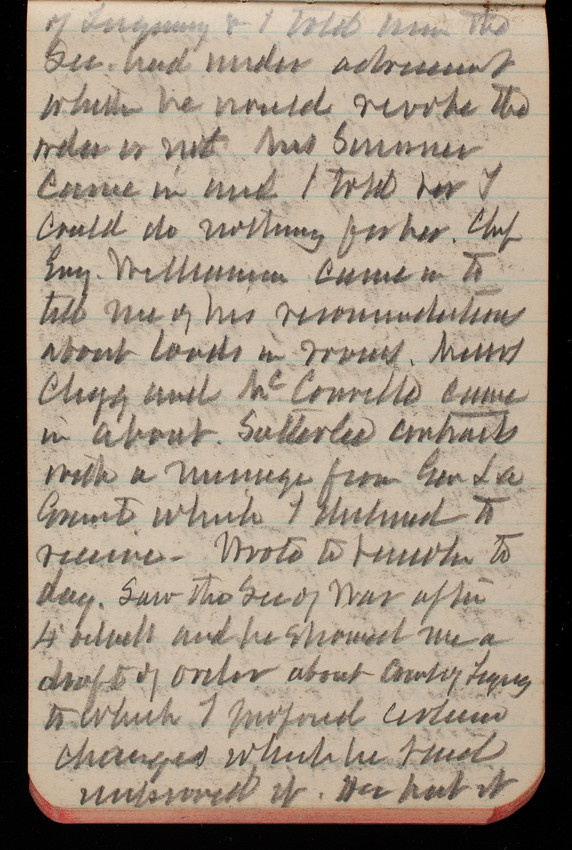 of Inquiry & I told him the
Sec. had under advisement
whether he would revoke the
order or not Mrs Sumner
came in and I told her I
could do nothing for her. Chf
Eng. Williamson came in to
tell me of his recommendations
about loads in rooms. Messrs
Clegg and McConville came
in about. Satterlee contracts
with a message from Gen
Grant which I declined to
receive - Wrote to Lincoln to
day. Saw the Sec of War after
4 oclock and he showed me a
draft of order about Court of Inquiry
to which I proposed certain
changes which he said
improved it. He put it